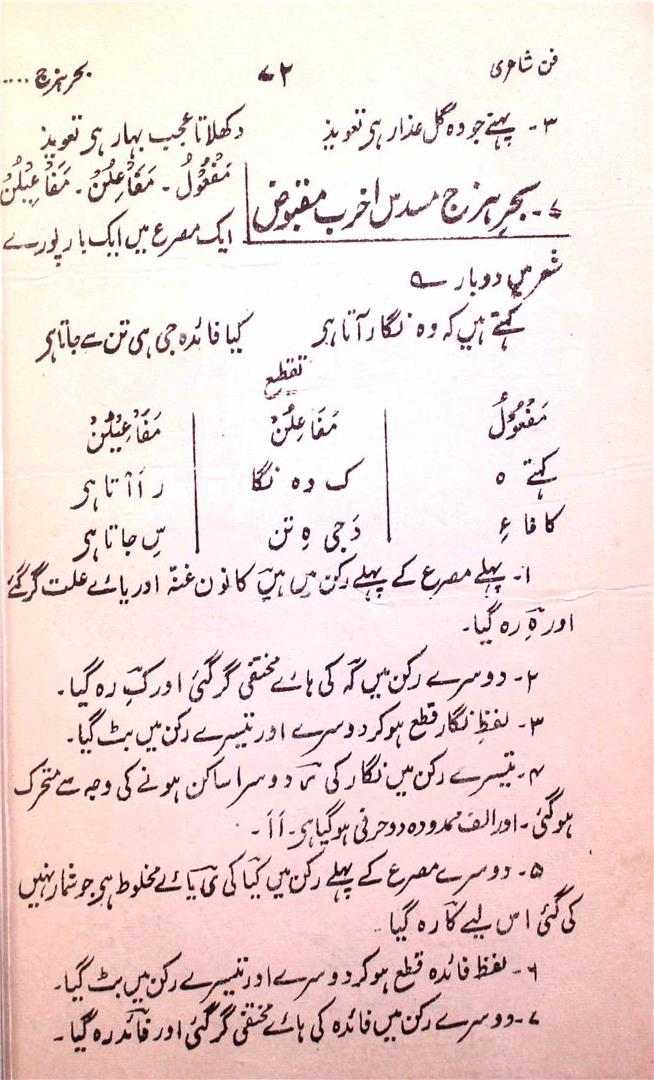 فن شاعری ۷۲ بحر ہزج ....
۳۔ پہنے جو وہ گل عذار ہی تعویذ دکھلاتا عجب بہار ہی تعویذ
۷۔ بحرِ ہزج مسدس اخرب مقبوض مَفعُولُ۔ مَفَاعِلُن۔ مَفَاعِیلُن
ایک مصرع میں ایک بار پورے
شعر میں دو بار ے
کہتے ہیں کہ وہ نگار آتا ہی کیا فائدہ جی ہی تن سے جاتا ہی
تقطیع
مَفعُولُ مَفَاعِلُن مَفَاعِیلُن
کہتے ہ ک وہ نگا ر اَا تا ہی
کا فا ءِ دَ جی ہِ تن سِ جاتا ہی
۱۔ پہلے مصرع کے پہلے رکن میں ہیں کا نون غنّہ اور یائے علت گر گئے
اور ہِ رہ گیا۔
۲۔ دوسرے رکن میں کہ کی ہائے مختفی گر گئی اور کِ رہ گیا۔
۳۔ لفظِ نگار قطع ہو کر دوسرے اور تیسرے رکن میں بٹ گیا۔
۴۔ تیسرے رکن میں نگار کی ر دوسرا ساکن ہونے کی وجہ سے متحرک
ہو گئی۔ اور الف ممدودہ دو حرفی ہو گیا ہی۔ اَ اَ۔
۵۔ دوسرے مصرع کے پہلے رکن میں کیا کی ی یائے مخلوط ہی جو شمار نہیں
کی گئی اس لیے کا رہ گیا۔
۶۔ لفظ فائدہ قطع ہو کر دوسرے اور تیسرے رکن میں بٹ گیا۔
۷۔ دوسرے رکن میں فائدہ کی ہائے مختفی گر گئی اور فائد رہ گیا۔